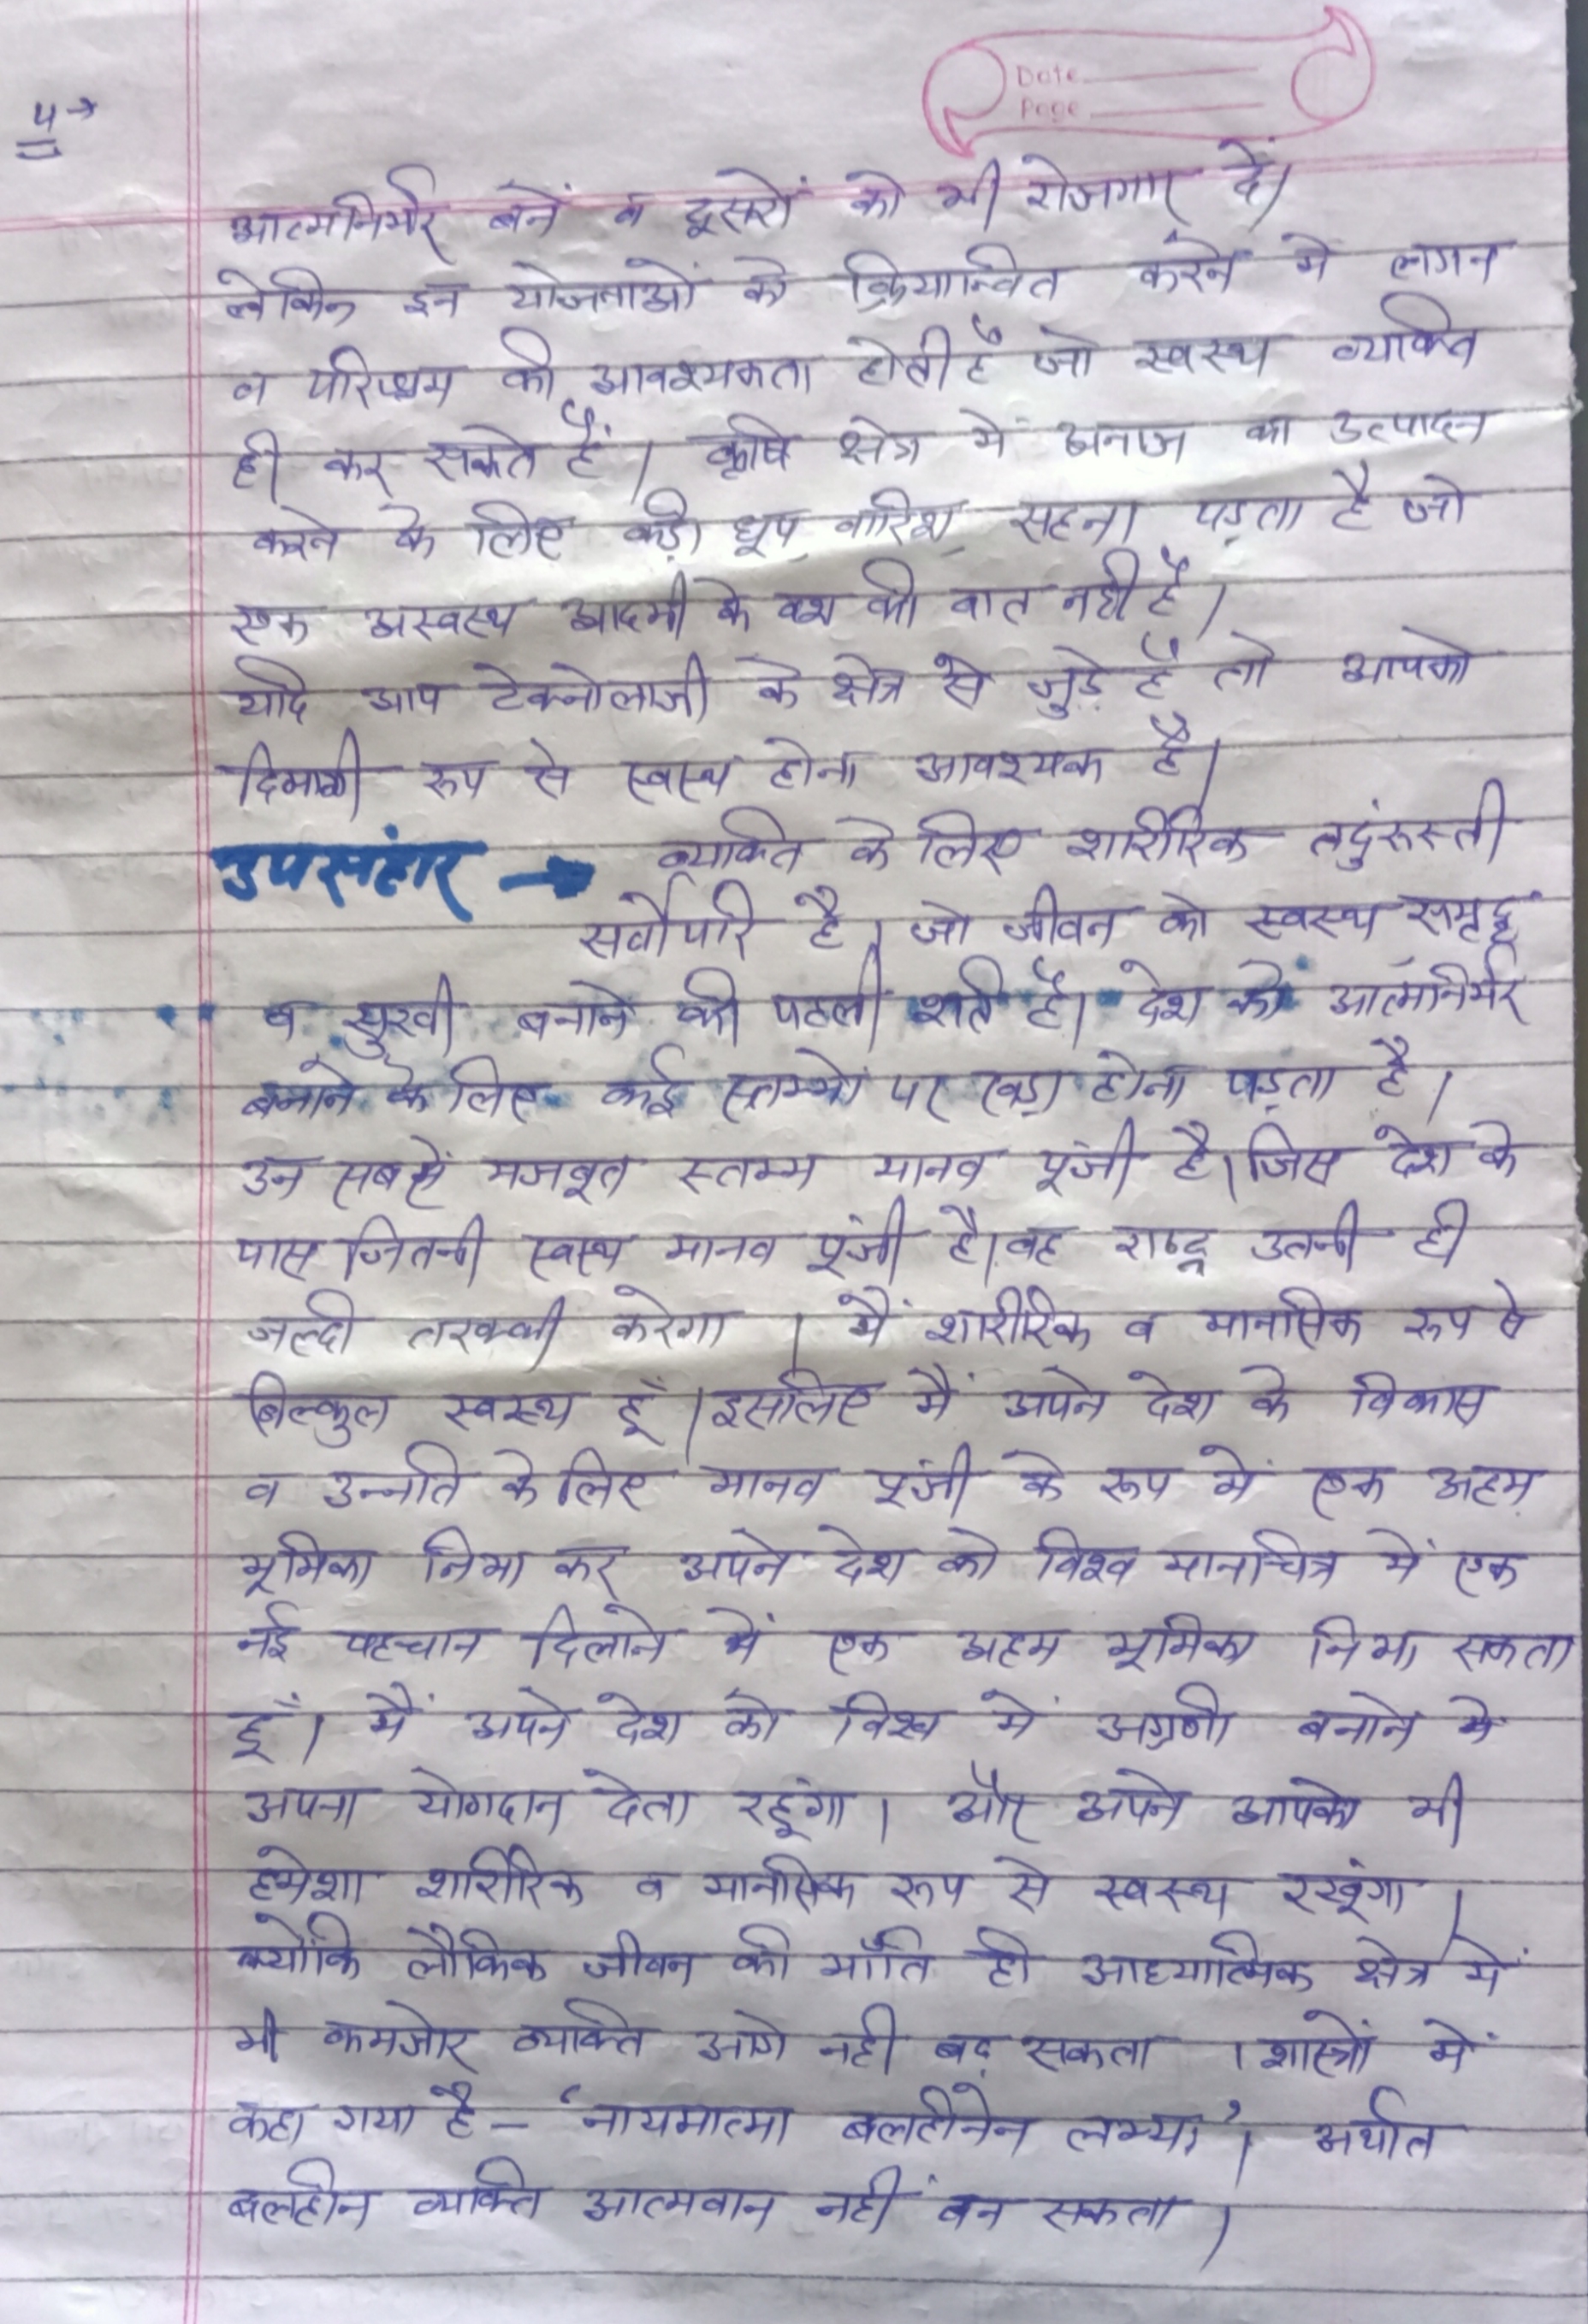 Date
Page
५→
आत्मनिर्भर बनें व दूसरों को भी रोजगार दें।
लेकिन इन योजनाओं को क्रियान्वित करने में लगन
व परिश्रम की आवश्यकता होती है जो स्वस्थ व्यक्ति
ही कर सकते हैं। कृषि क्षेत्र में अनाज का उत्पादन
करने के लिए कड़ी धूप, बारिश सहना पड़ता है जो
एक अस्वस्थ आदमी के वश की बात नही है।
यदि आप टेक्नोलाजी के क्षेत्र से जुड़े हैं तो आपको
दिमागी रूप से स्वस्थ होना आवश्यक है।
उपसंहार → व्यक्ति के लिए शारीरिक तदुंरूस्ती
सर्वोपरि है। जो जीवन को स्वस्थ समृद्ध
व सुखी बनाने की पहली शर्त है। देश को आत्मनिर्भर
बनाने के लिए कई स्तम्भों पर खड़ा होना पड़ता है।
उन सबसे मजबूत स्तम्भ मानव पूंजी है। जिस देश के
पास जितनी स्वस्थ मानव पूंजी है। वह राष्ट्र उतनी ही
जल्दी तरक्की करेगा। मैं शारीरिक व मानसिक रूप से
बिल्कुल स्वस्थ हूँ। इसलिए मैं अपने देश के विकास
व उन्नति के लिए मानव पूंजी के रूप में एक अहम
भूमिका निभा कर अपने देश को विश्व मानचित्र में एक
नई पहचान दिलाने में एक अहम भूमिका निभा सकता
हूँ। मैं अपने देश को विश्व में अग्रणी बनाने में
अपना योगदान देता रहूंगा। और अपने आपको भी
हमेशा शारीरिक व मानसिक रूप से स्वस्थ रखूंगा।
क्योंकि लौकिक जीवन की भाँति ही आध्यात्मिक क्षेत्र में
भी कमजोर व्यक्ति आगे नही बढ़ सकता । शास्त्रों में
कहा गया है - 'नायमात्मा बलहीनेन लभ्या'। अर्थात
बलहीन व्यक्ति आत्मवान नहीं बन सकता।